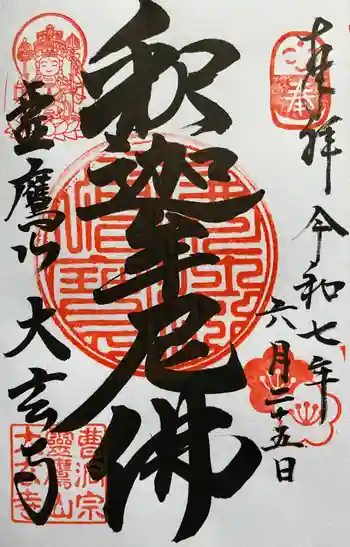 奉拝 令和七年
六月二十五日
釈迦牟尼佛
霊鷹山 大玄寺
奉
曹洞宗
霊鷹山
大玄寺